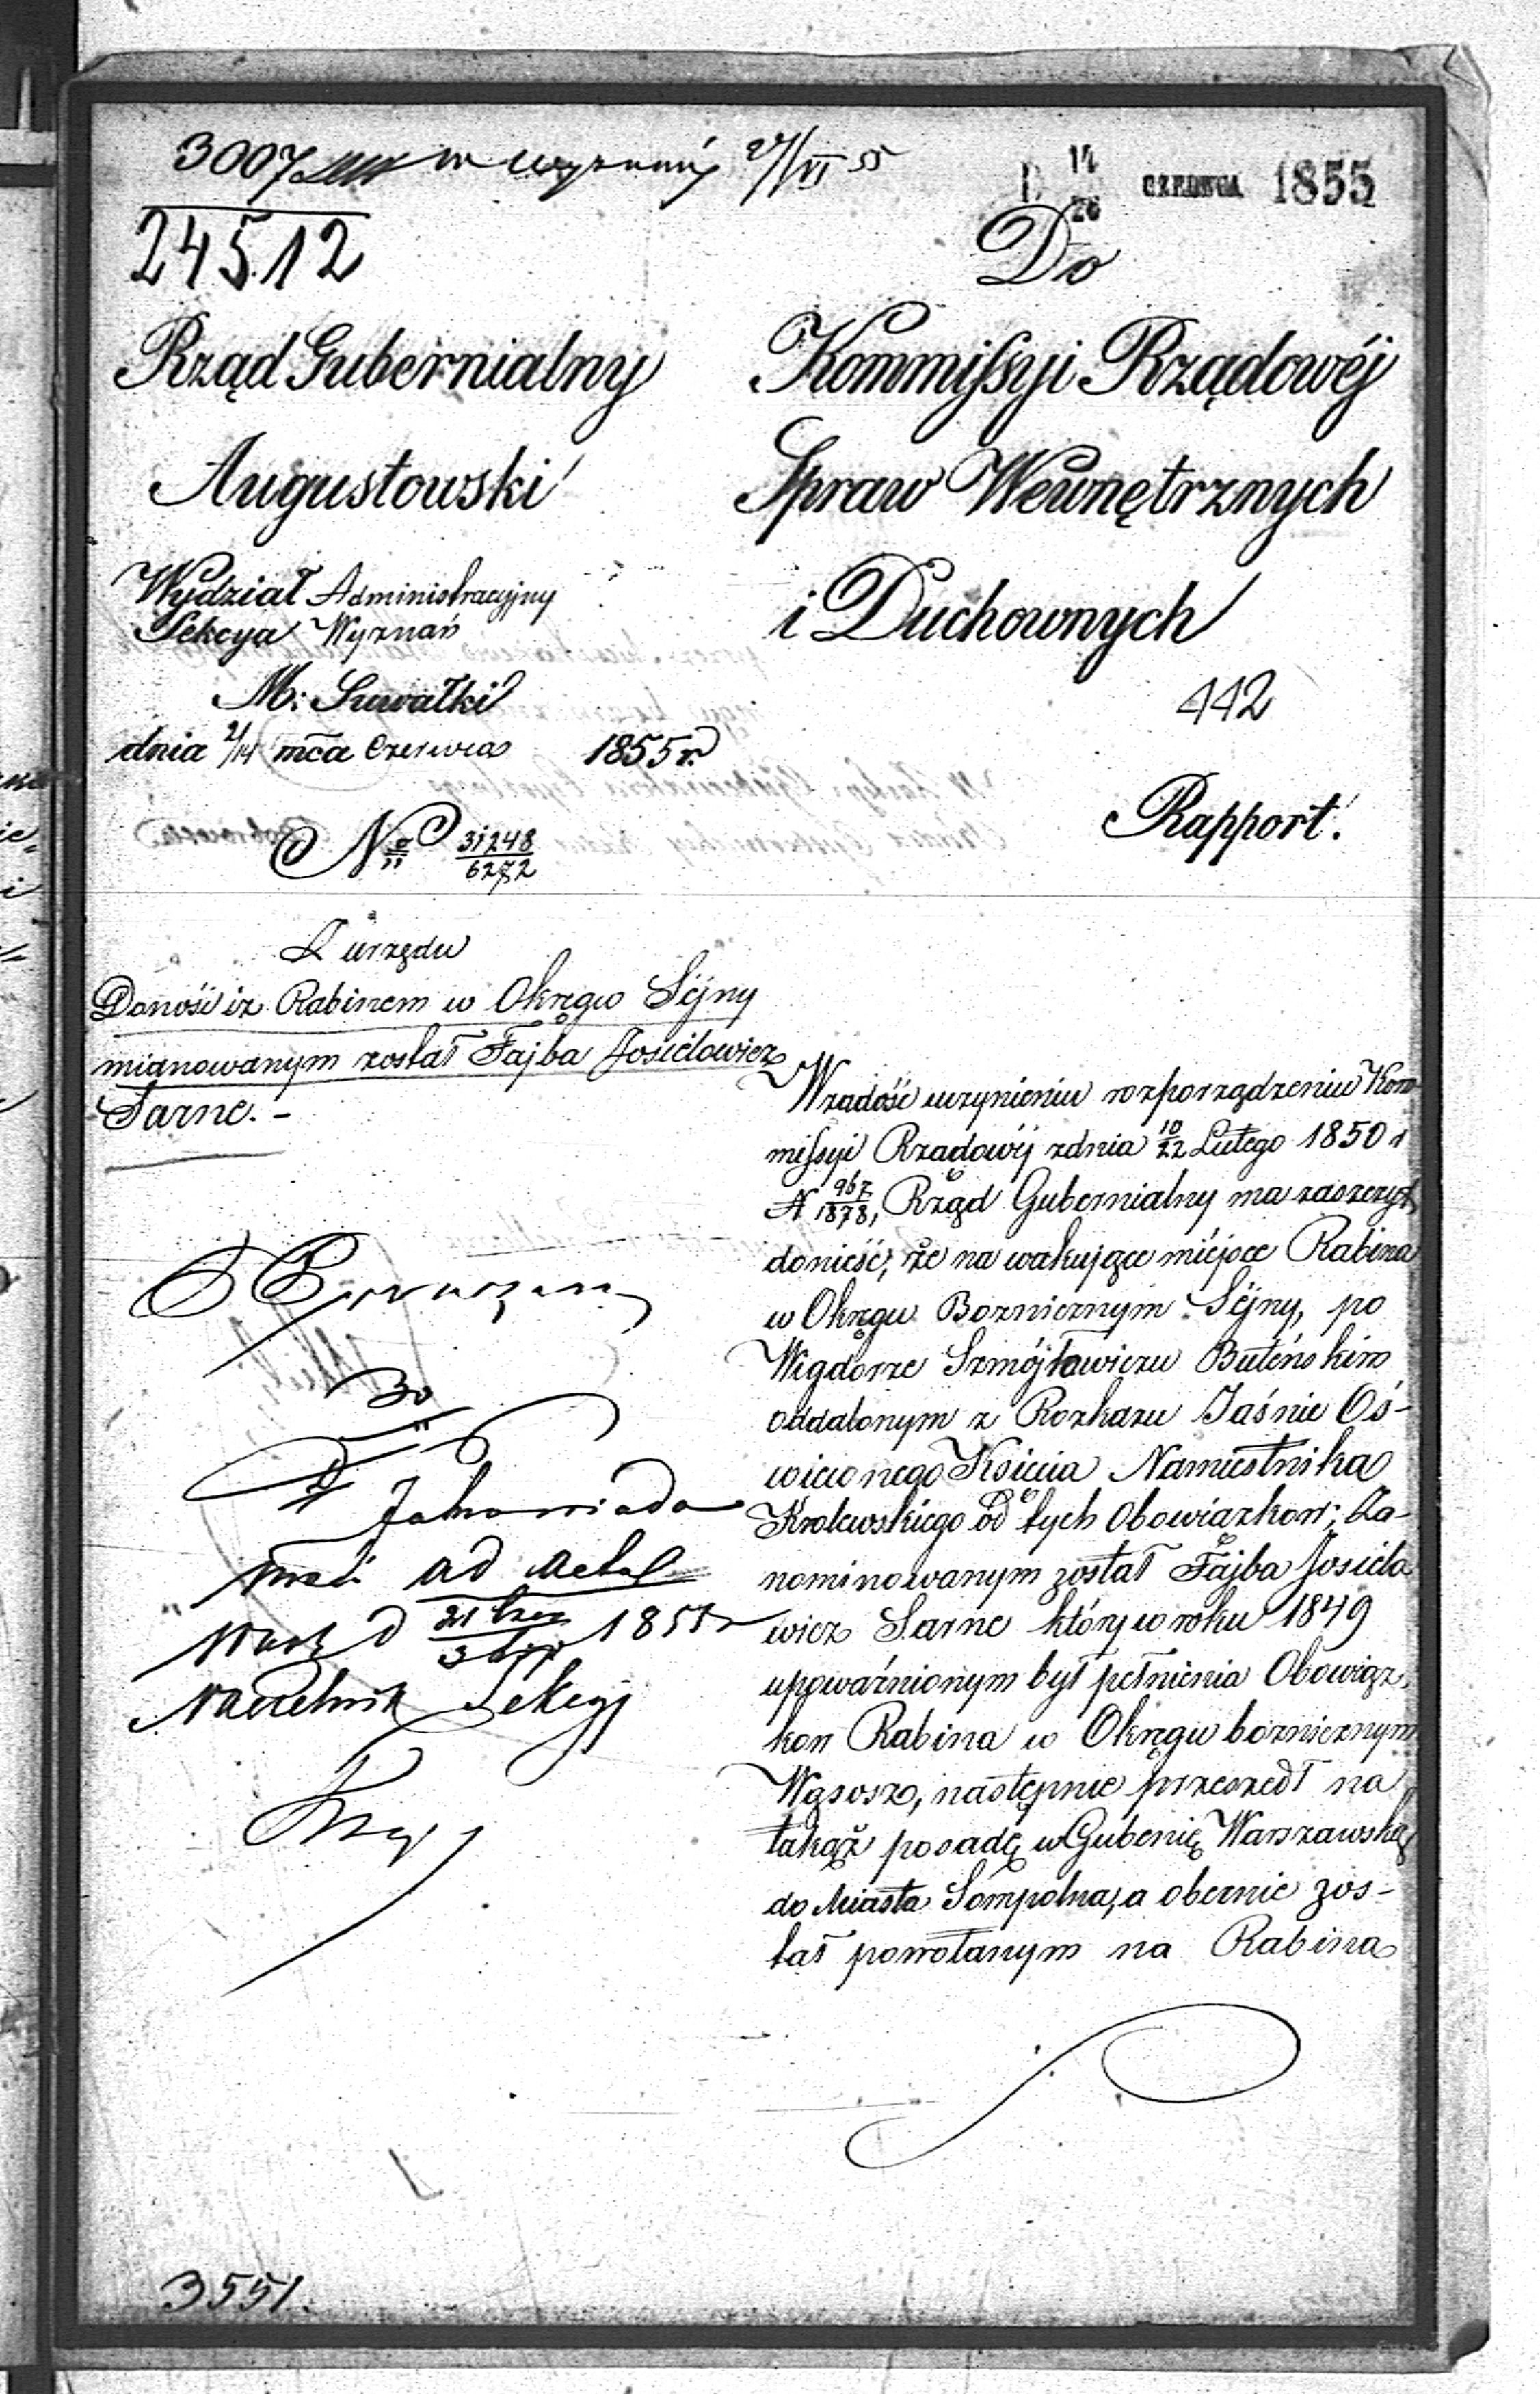 3007 w wyznaniu 27/VI 55
D 14/26 CZERWCA 1855
24512
Rząd Gubernialny
Augustowski
Wydział Administracyjny
Sekcya Wyznań
M. Suwałki
dnia 2/14 mca Czerwca 1855 r.
No 31248/6272
Z urzędu
Donosi iż Rabinem w Okręgu Sejny
mianowanym został Fajba Josielowicz
Sarne. -
Do
Kommissyi Rządowéj
Spraw Wewnętrznych
i Duchownych
442
Rapport.
W zadość uczynieniu rozporządzeniu Kom-
missyi Rządowéj z dnia 10/22 Lutego 1850 r
N 967/1878, Rząd Gubernialny ma zaszczyt
donieść, że na wakujące miéjsce Rabina
w Okręgu Boznicznym Sejny, po
Wigdorze Szmójłowiczu Buteńskim
oddalonym z Rozkazu Jaśnie Oś-
wieconego Księcia Namiestnika
Królewskiego od tych Obowiązkow; Za-
nominowanym został Fajba Josielo
wicz Sarne który w roku 1849
upoważnionym był pełnienia Obowiąz-
kow Rabina w Okręgu boznicznym
Wąsosz, następnie przeszedł na
takąż posadę w Gubernię Warszawską
do Miasta Sompolna, a obecnie zos-
tał powołanym na Rabina
ad acta
1855
Naczelnik Sekcyi
3551.